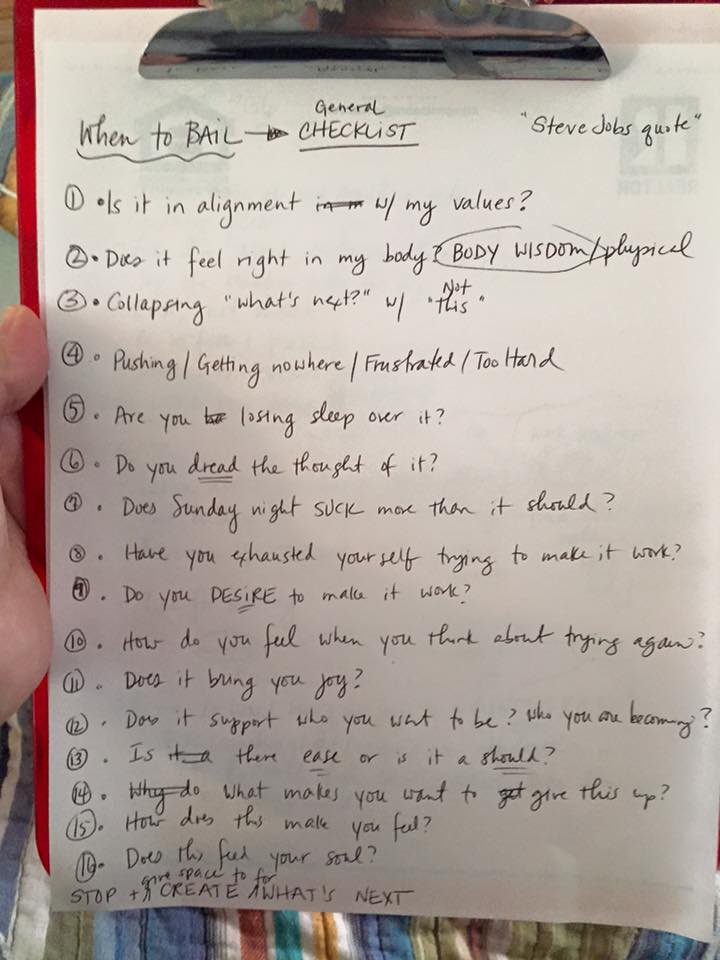 When to BAIL → General CHECKLIST "Steve Jobs quote"
① • Is it in alignment w/ my values?
② • Does it feel right in my body? BODY WISDOM/physical
③ • Collapsing "what's next?" w/ "Not this"
④ • Pushing / Getting nowhere / Frustrated / Too Hard
⑤ • Are you losing sleep over it?
⑥ • Do you dread the thought of it?
⑦ • Does Sunday night SUCK more than it should?
⑧ • Have you exhausted yourself trying to make it work?
⑨ • Do you DESIRE to make it work?
⑩ • How do you feel when you think about trying again?
⑪ • Does it bring you joy?
⑫ • Does it support who you want to be? Who you are becoming?
⑬ • Is there ease or is it a should?
⑭ • What makes you want to give this up?
⑮ • How does this make you feel?
⑯ • Does this feed your soul?
STOP + give space to CREATE for WHAT'S NEXT